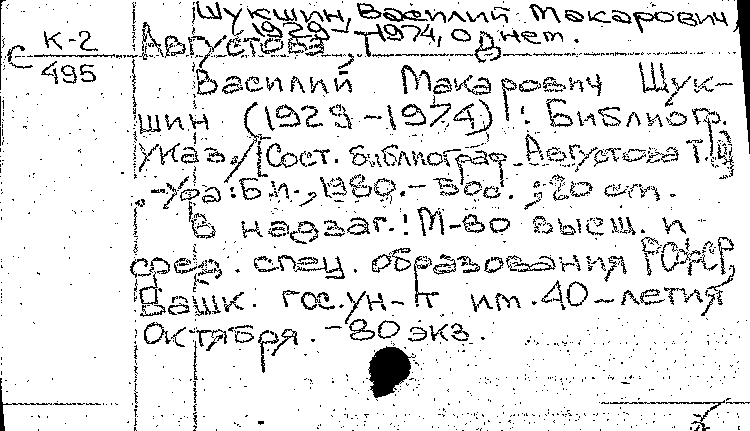 Шукшин, Василий Макарович,
1929-1974, о нем.
К-2
Августова, Т.
С
495
Василий Макарович Шук-
шин (1929-1974): Библиогр.
указ./[Сост. библиограф Августова Т.И]
.-Уфа: Б.и., 1980.- 50с.; 20 см.
В надзаг.: М-во высш. и
сред. спец. образования РСФСР,
Башк. гос. ун-т им. 40-летия
Октября. -80 экз.